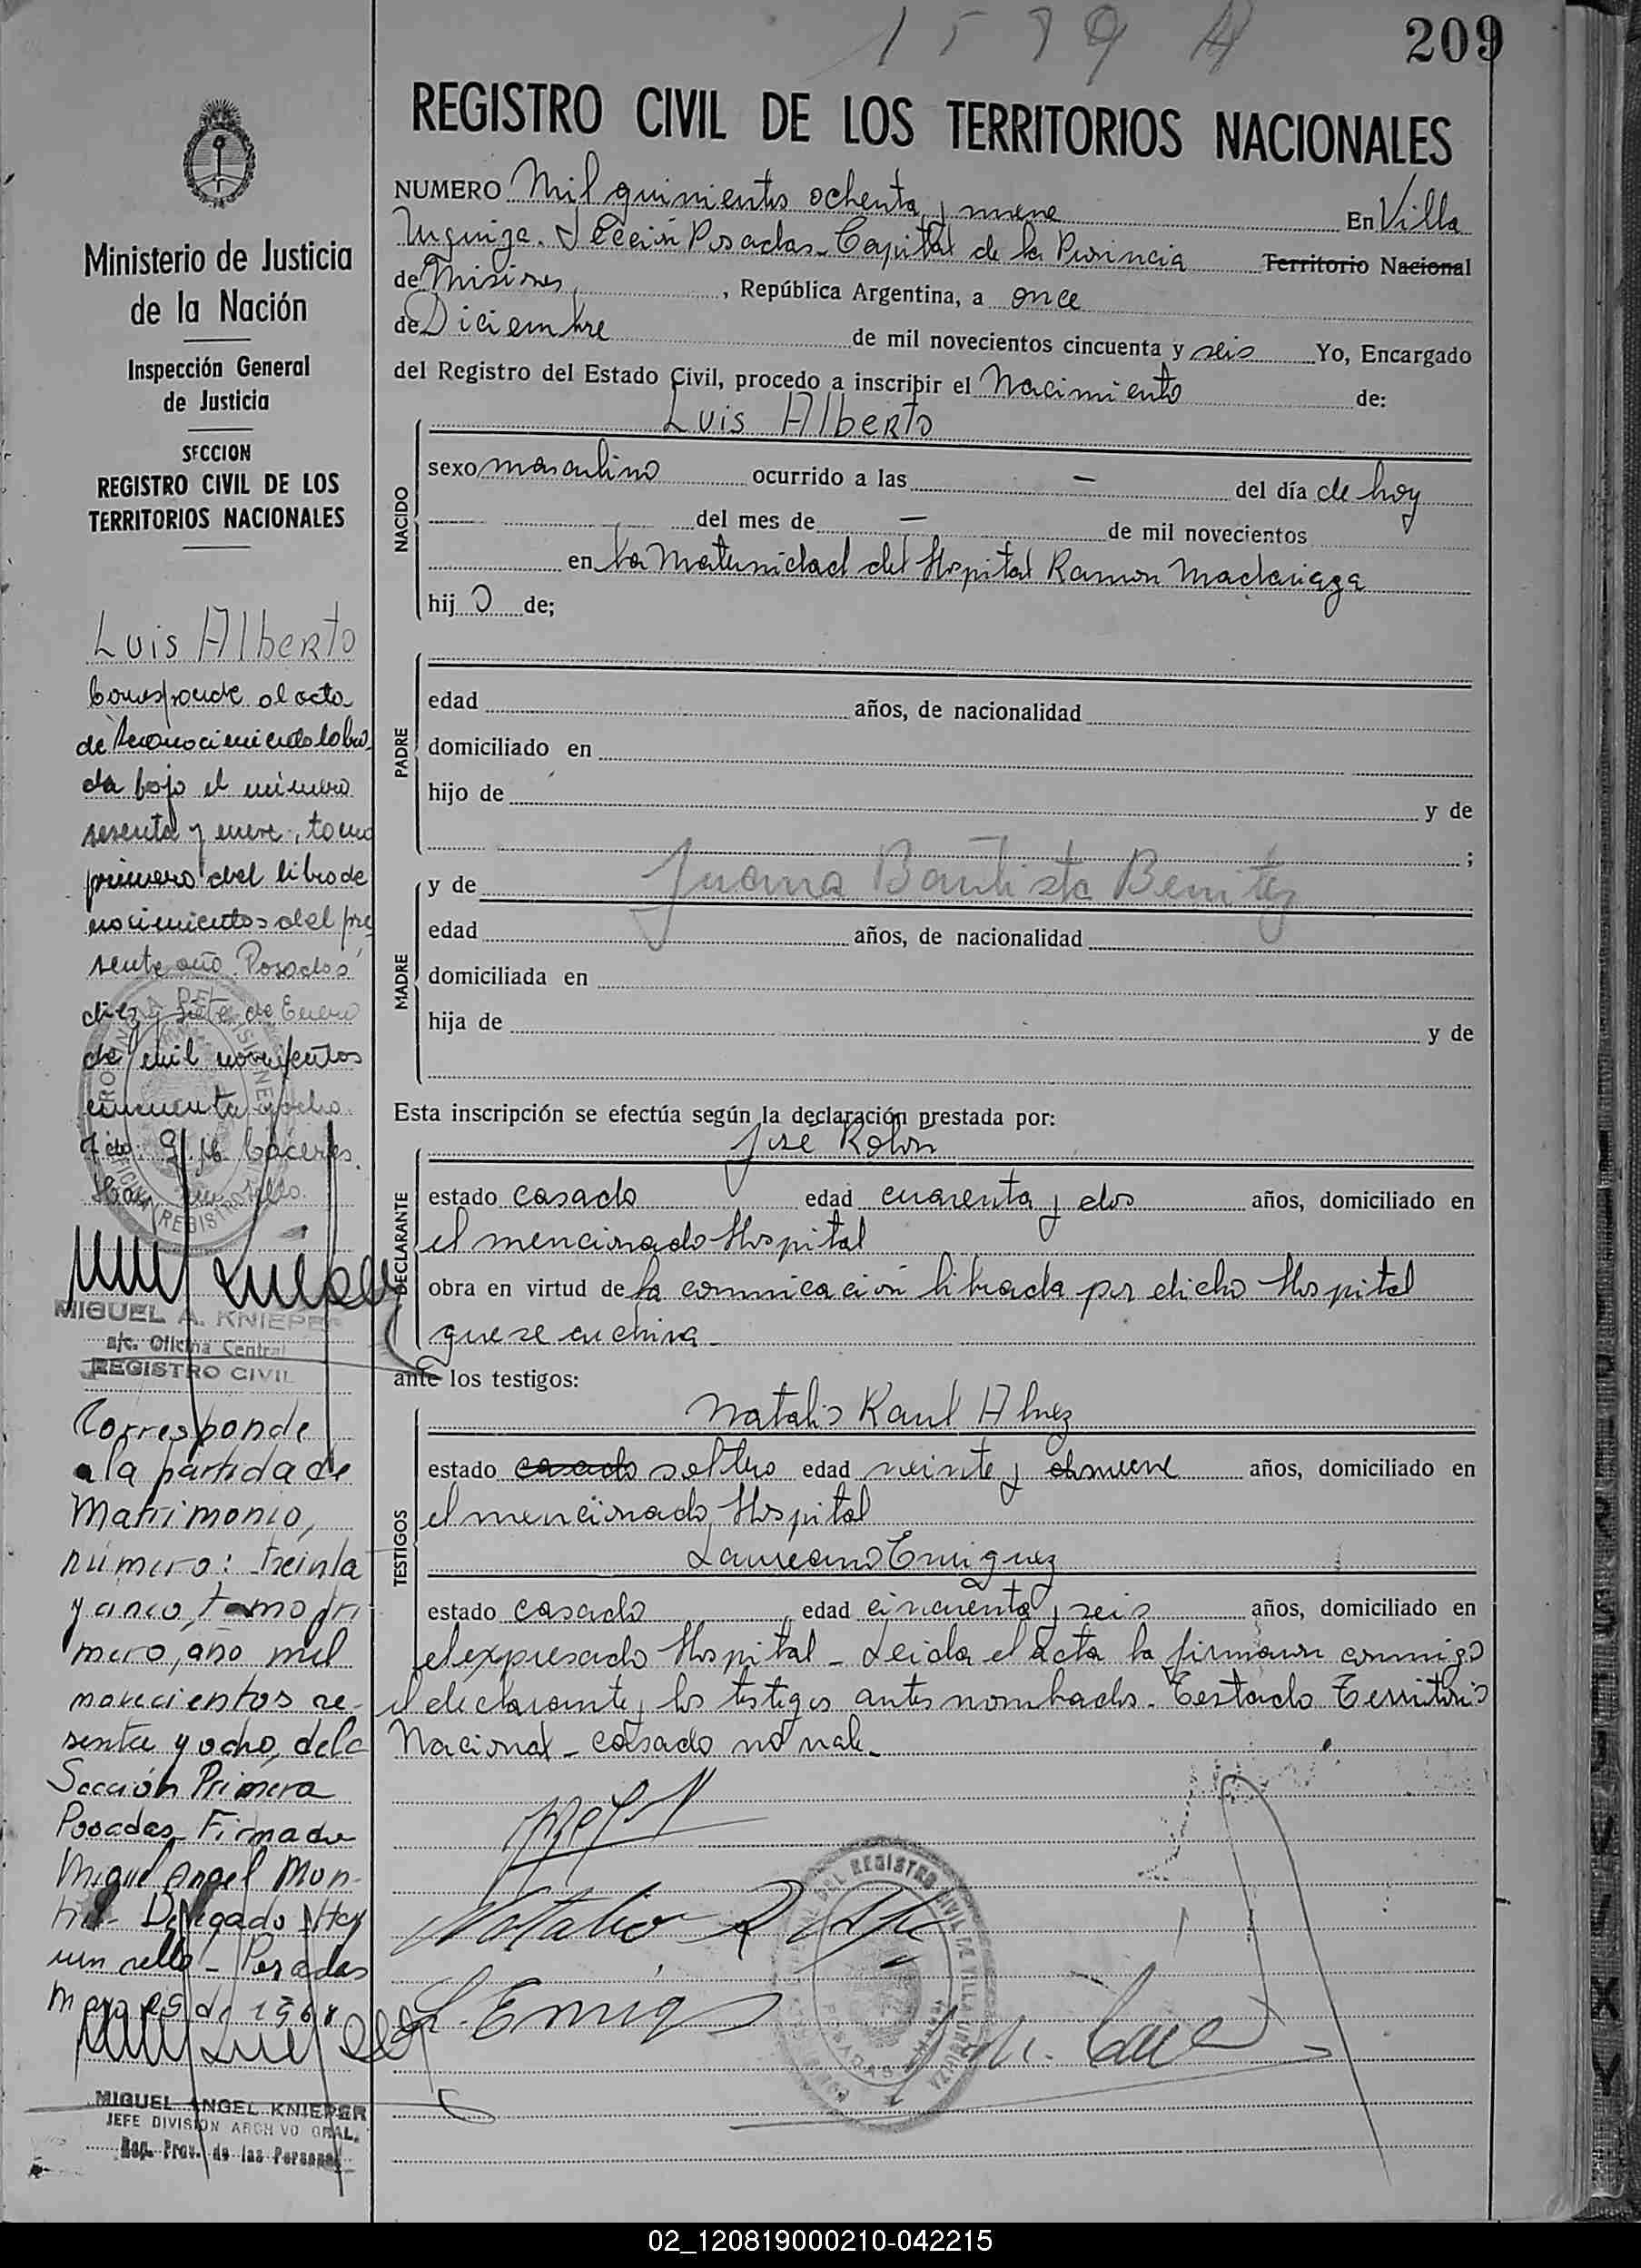 1589 A
209
REGISTRO CIVIL DE LOS TERRITORIOS NACIONALES
NUMERO Mil quinientos ochenta y nueve En Villa
Urquiza. Sección Posadas - Capital de la Provincia Territorio Nacional
de Misiones, República Argentina, a once
de Diciembre de mil novecientos cincuenta y seis Yo, Encargado
del Registro del Estado Civil, procedo a inscribir el Nacimiento de:
Luis Alberto
NACIDO
sexo masculino ocurrido a las — del día de hoy
del mes de — de mil novecientos
en la Maternidad del Hospital Ramon Madariaga
hijo de;
PADRE
edad años, de nacionalidad
domiciliado en
hijo de y de
;
MADRE
y de Juana Bautista Benitez
edad años, de nacionalidad
domiciliada en
hija de y de
Esta inscripción se efectúa según la declaración prestada por:
DECLARANTE
José Rolon
estado casado edad cuarenta y dos años, domiciliado en
el mencionado Hospital
obra en virtud de la comunicación librada por dicho Hospital
que se archiva -
ante los testigos:
TESTIGOS
Natalio Raul Alvez
estado casado soltero edad veinte y nueve años, domiciliado en
el mencionado Hospital
Laureano Enriquez
estado casado edad cincuenta y seis años, domiciliado en
el expresado Hospital - Leida el acta la firman conmigo
el declarante y los testigos antes nombrados. Testado Territorio
Nacional - casado no vale -
Natalio R
L. Enriq
Ministerio de Justicia
de la Nación
Inspección General
de Justicia
SECCION
REGISTRO CIVIL DE LOS
TERRITORIOS NACIONALES
Luis Alberto
Corresponde al acta
de Reconocimiento labra
da bajo el número
sesenta y nueve, tomo
primero del libro de
nacimientos del pre
sente año. Posadas
diez y siete de Enero
de mil novecientos
cincuenta y ocho.
Fdo: Caceres.
Hay un sello.
MIGUEL A. KNIEPER
a/c. Oficina Central
REGISTRO CIVIL
Corresponde
a la partida de
Matrimonio,
número: treinta
y cinco, tomo pri
mero, año mil
novecientos se-
senta y ocho, de la
Sección Primera
Posadas - Firmado
Miguel Angel Mon-
tiel - Delegado Hay
un sello - Posadas
Mayo 29 de 1968
MIGUEL ANGEL KNIEPER
JEFE DIVISION ARCHIVO GRAL.
Reg. Prov. de las Personas
02_120819000210-042215